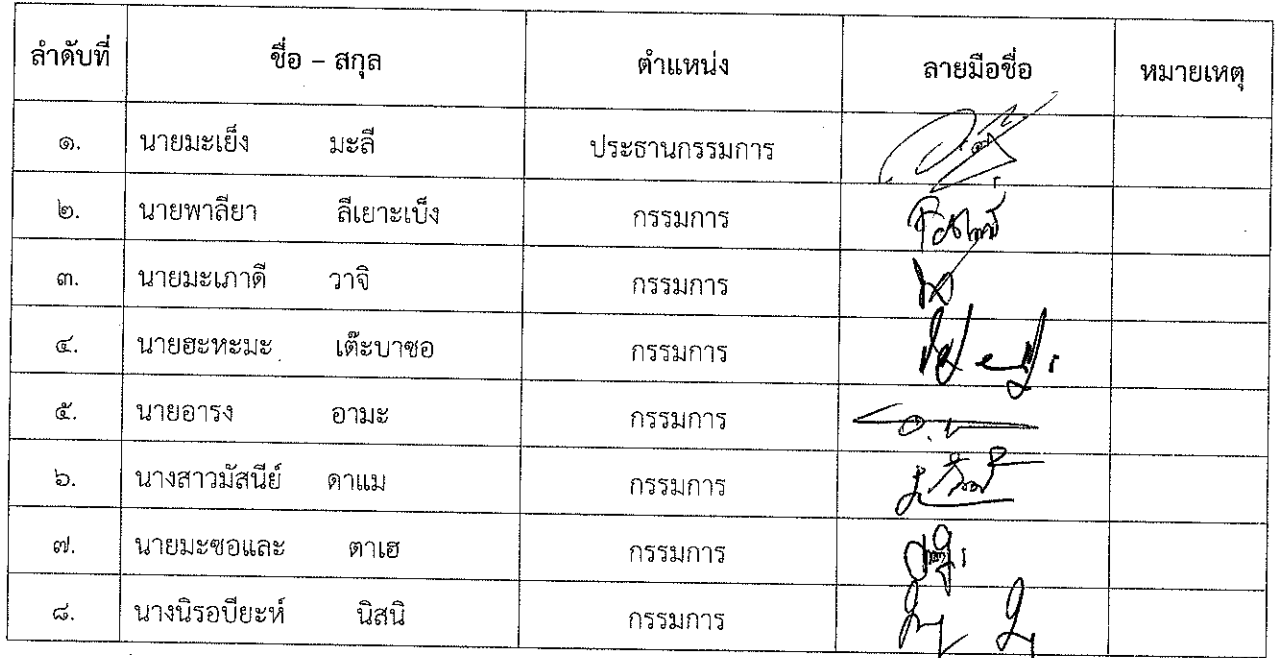 ลำดับที่ ชื่อ – สกุล ตำแหน่ง ลายมือชื่อ หมายเหตุ
๑. นายมะเย็ง มะลี ประธานกรรมการ
๒. นายพาลียา ลีเยาะเบ็ง กรรมการ
๓. นายมะเภาดี วาจิ กรรมการ
๔. นายฮะหะมะ เต๊ะบาซอ กรรมการ
๕. นายอารง อามะ กรรมการ
๖. นางสาวมัสนีย์ ดาแม กรรมการ
๗. นายมะซอและ ตาเฮ กรรมการ
๘. นางนิรอบียะห์ นิสนิ กรรมการ